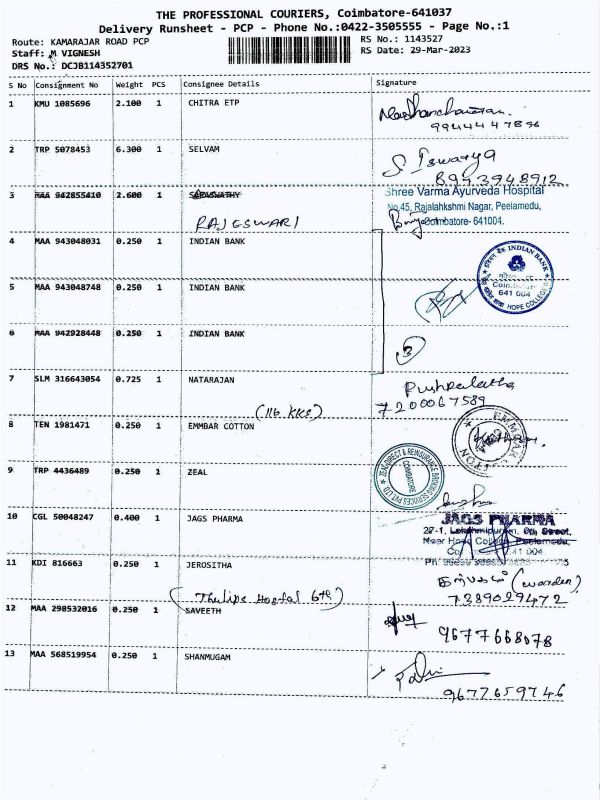 THE PROFESSIONAL COURIERS, Coimbatore-641037
Delivery Runsheet - PCP - Phone No.:0422-3505555 - Page No.:1
Route: KAMARAJAR ROAD PCP
RS No.: 1143527
Staff: M VIGNESH
RS Date: 29-Mar-2023
DRS No.: DCJB114352701
S No Consignment No Weight PCS Consignee Details Signature
1 KMU 1085696 2.100 1 CHITRA ETP
9944447896
2 TRP 5078453 6.300 1 SELVAM
S. Iswarya
8973948912
3 MAA 942855410 2.600 1 SARASWATHY
Shree Varma Ayurveda Hospital
No.45, Rajalahkshmi Nagar, Peelamedu,
Coimbatore- 641004.
RAJESWARI
4 MAA 943048031 0.250 1 INDIAN BANK
INDIAN BANK
641 004
HOPE COLLEGE
5 MAA 943048748 0.250 1 INDIAN BANK
6 MAA 942928448 0.250 1 INDIAN BANK
3
7 SLM 316643054 0.725 1 NATARAJAN
Pushpalatha
7200067589
(116 KKS)
8 TEN 1981471 0.250 1 EMMBAR COTTON
EMMBAR COTTON
9 TRP 4436489 0.250 1 ZEAL
REINSURANCE BROKING SERVICES PVT LTD
COIMBATORE
10 CGL 50048247 0.400 1 JAGS PHARMA
JAGS PHARMA
27-1, Lakshmipuram, 6th Street,
Near Hope College, Peelamedu,
11 KDI 816663 0.250 1 JEROSITHA
(warden)
7389029472
(Thulips Hostal 6th)
12 MAA 298532016 0.250 1 SAVEETH
9677668078
13 MAA 568519954 0.250 1 SHANMUGAM
9677659746